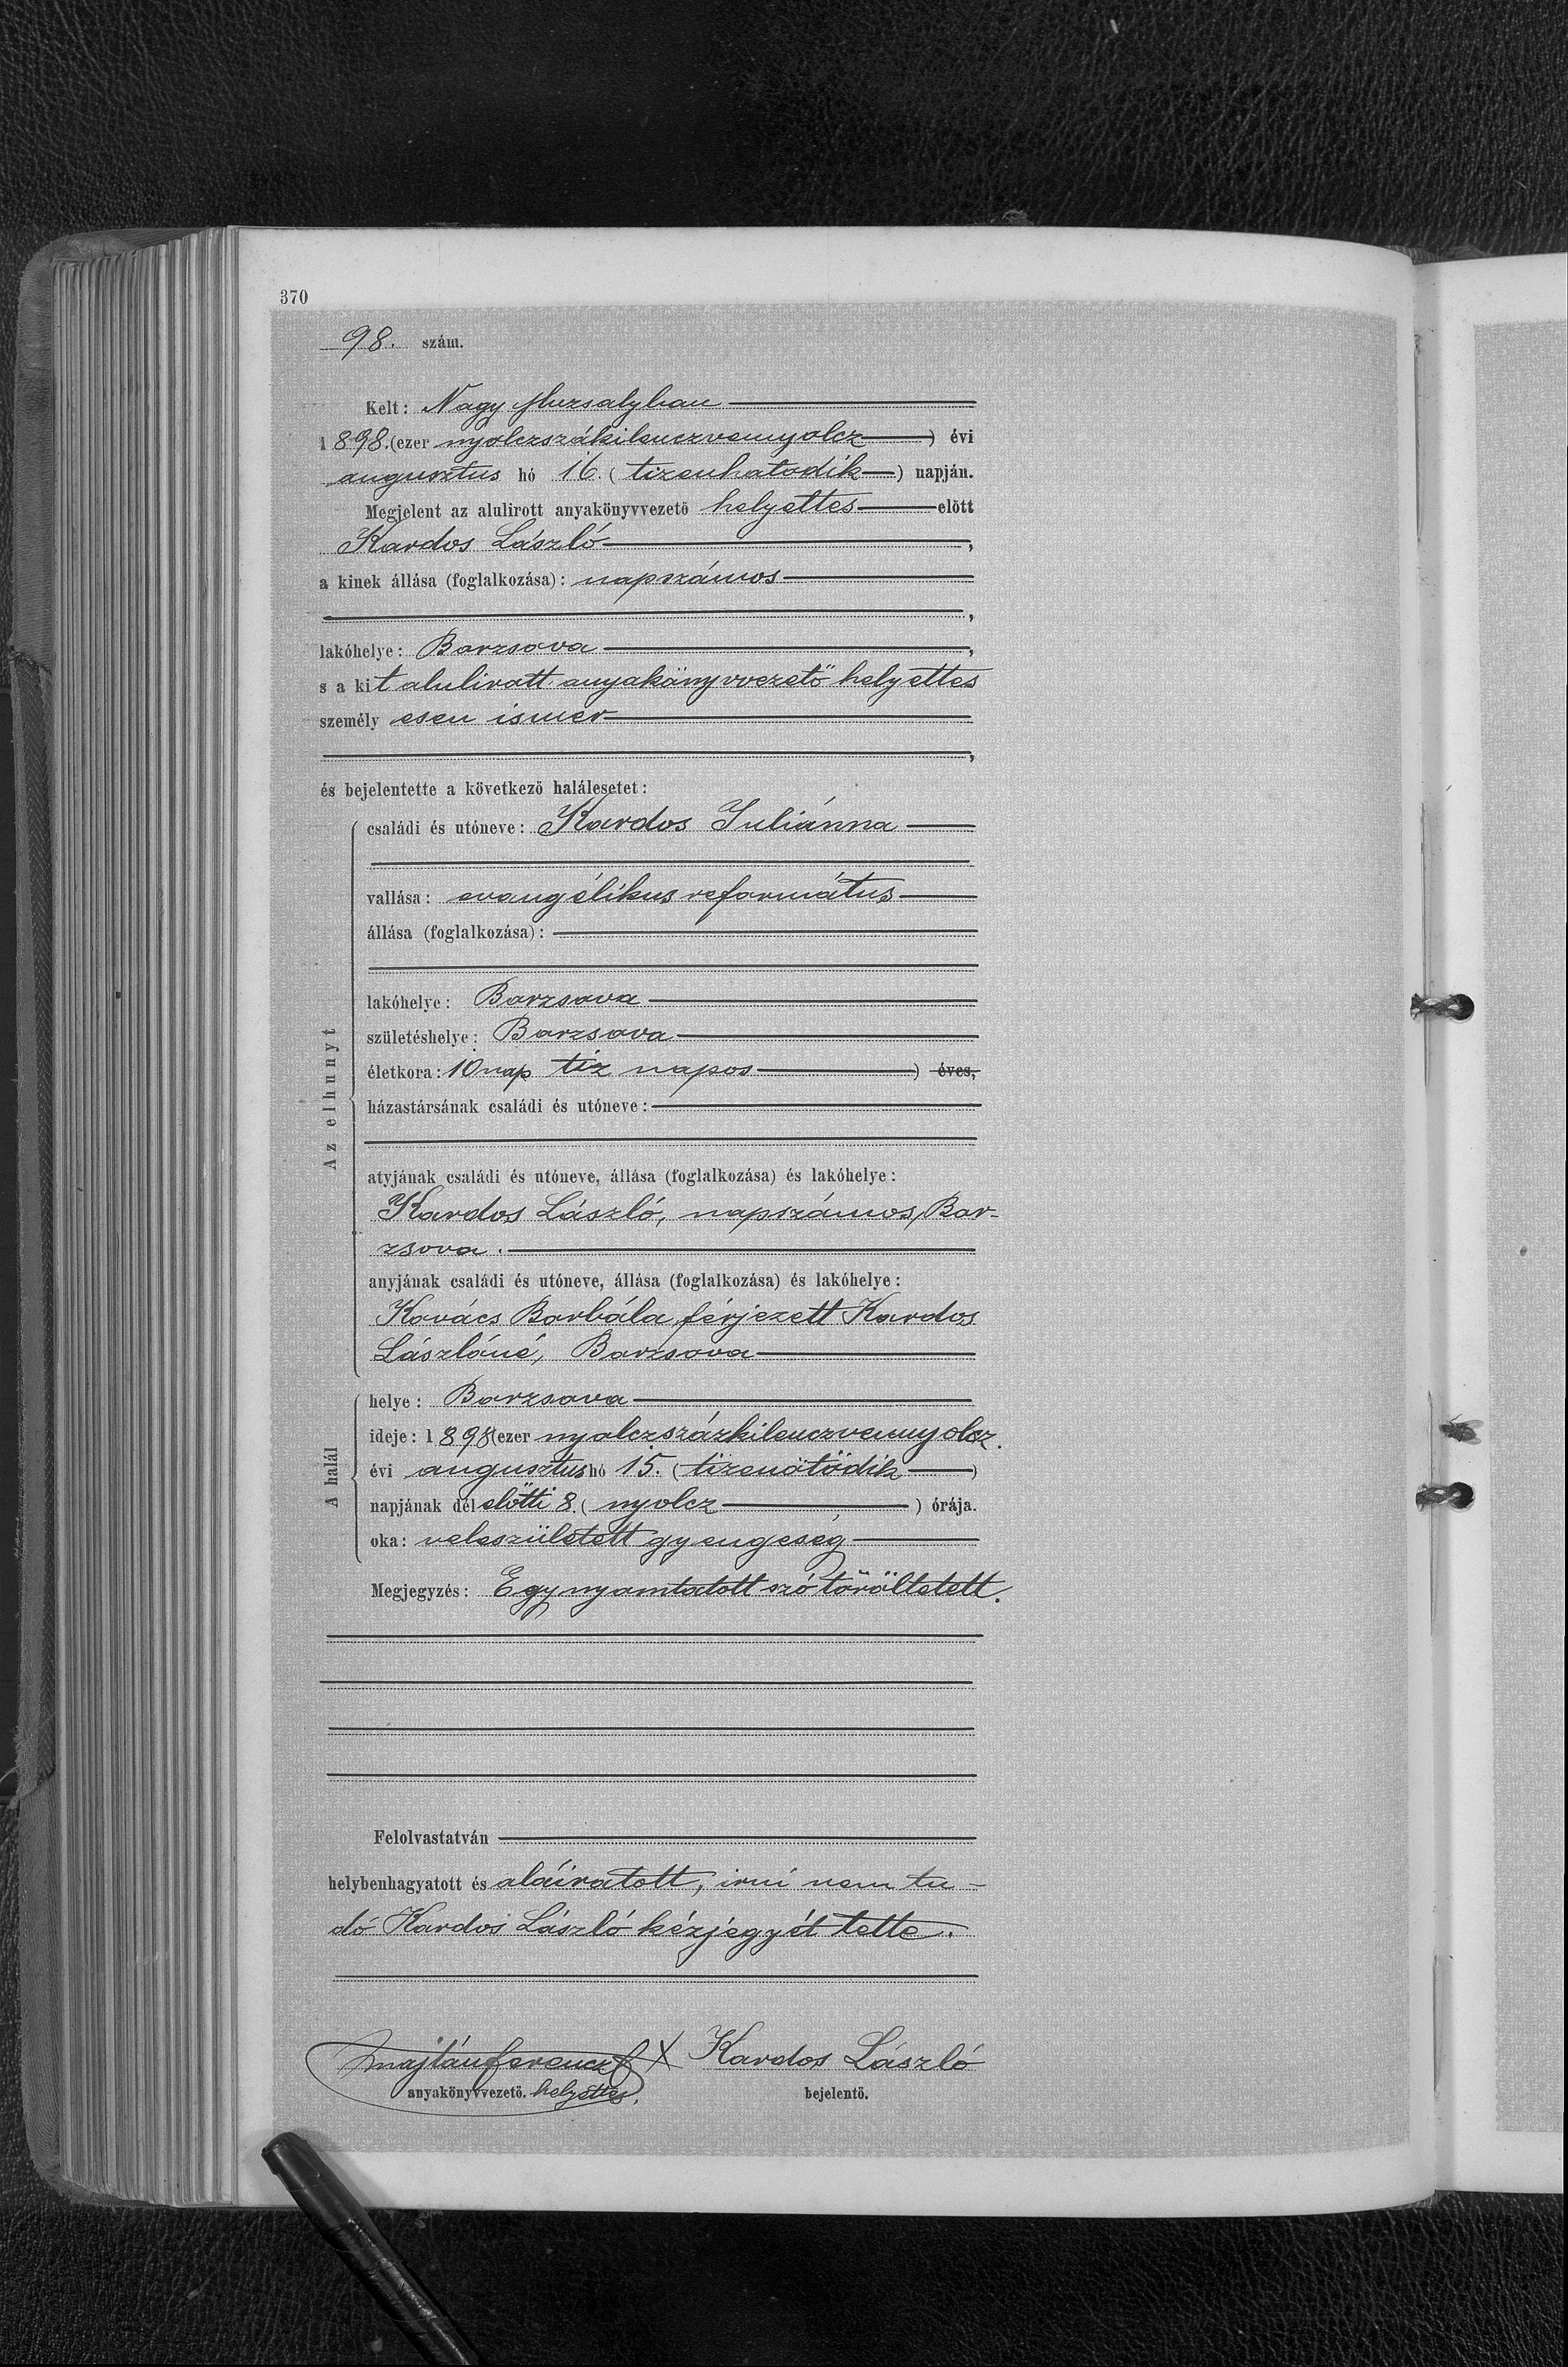 370
98. szám.
Kelt: Nagy Muzsalyban
1898. (ezer nyolczszázkilenczvennyolcz) évi
augusztus hó 16. (tizenhatodik) napján.
Megjelent az alulirott anyakönyvvezető helyettes előtt
Kardos László,
a kinek állása (foglalkozása): napszámos
,
lakóhelye: Borzsova,
s a kit alulirott anyakönyvvezető helyettes
személyesen ismer
,
és bejelentette a következő halálesetet:
Az elhunyt
családi és utóneve: Kardos Juliánna
vallása: evangélikus református
állása (foglalkozása):
lakóhelye: Borzsova
születéshelye: Borzsova
életkora: 10 nap tiz napos) éves,
házastársának családi és utóneve:
atyjának családi és utóneve, állása (foglalkozása) és lakóhelye:
Kardos László, napszámos, Bor-
zsova.
anyjának családi és utóneve, állása (foglalkozása) és lakóhelye:
Kovács Borbála, férjezett Kardos
Lászlóné, Borzsova
A halál
helye: Borzsova
ideje: 1898 (ezer nyolczszázkilenczvennyolcz.
évi augusztus hó 15. (tizenötödik)
napjának délelőtti 8. (nyolcz) órája.
oka: veleszületett gyengeség
Megjegyzés: Egy nyomtatott szó töröltetett.
Felolvastatván
helybenhagyatott és aláiratott, irni nem tu-
dó Kardos László kézjegyét tette.
Majláth Ferencz X Kardos László
anyakönyvvezető. helyettes. bejelentő.